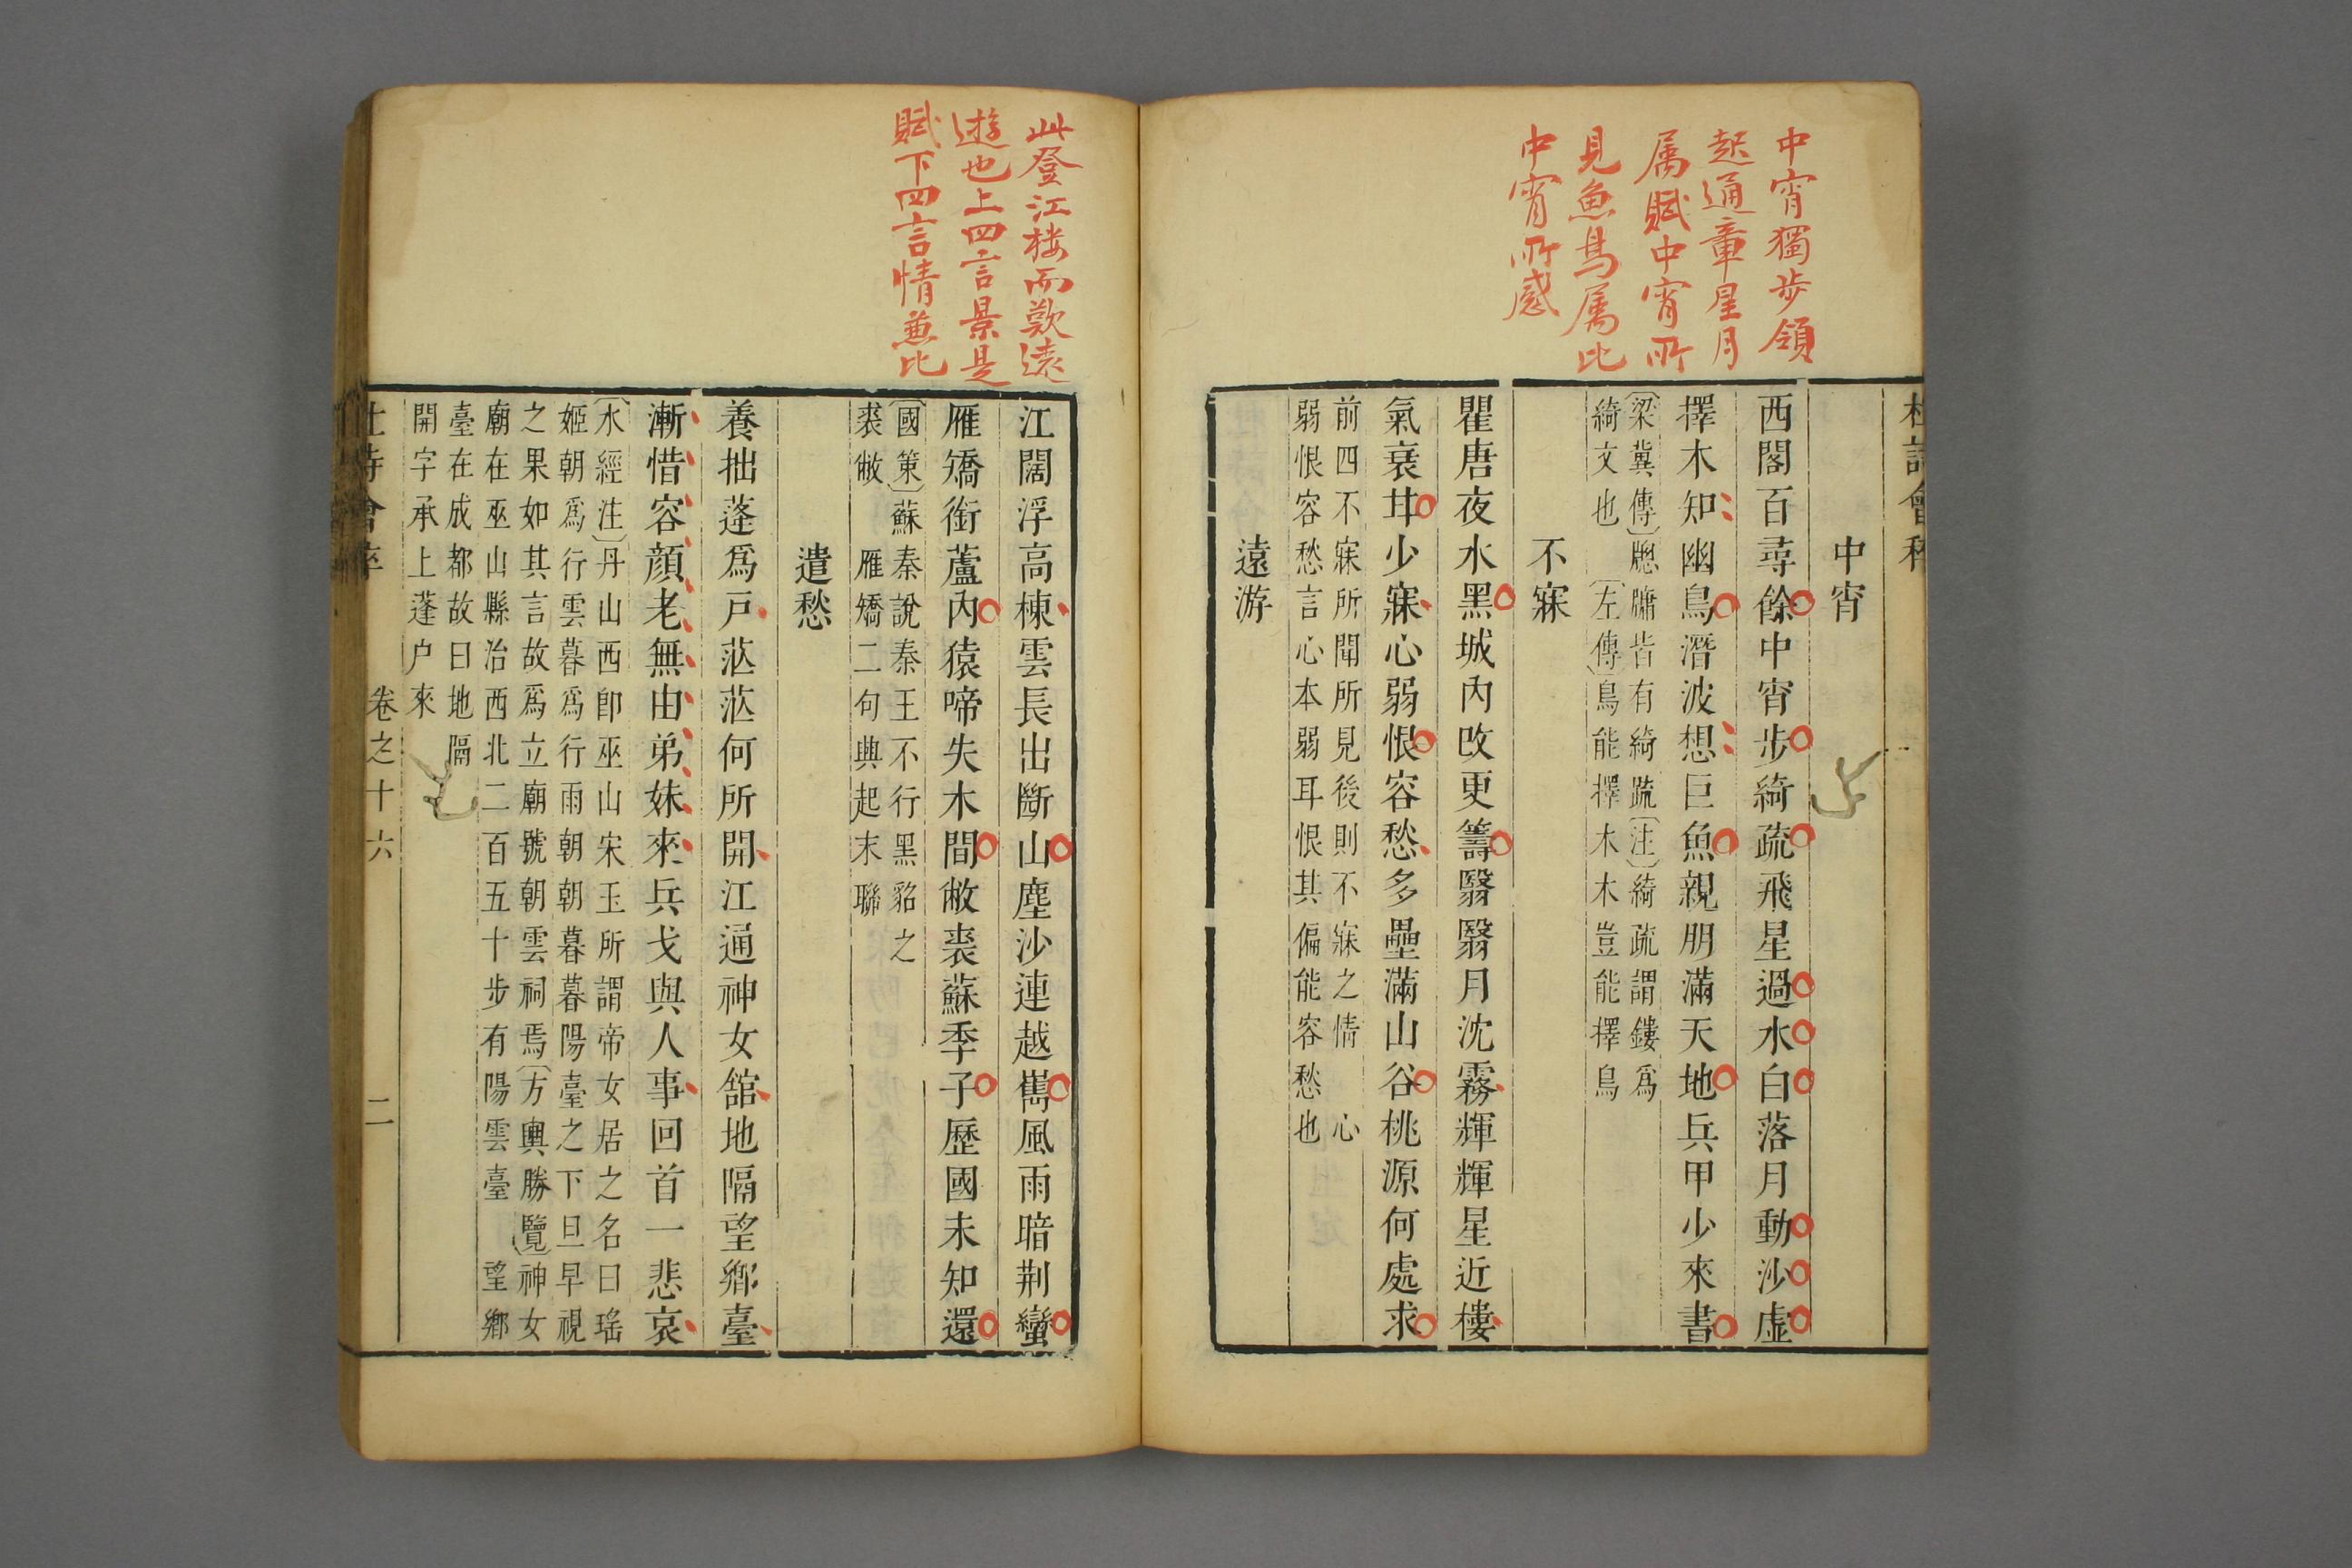 中宵獨步領
起通章星月
属賦中宵所
見魚鳥属比
中宵所感
杜詩會稡
中宵
西閣百尋餘中宵步綺疏飛星過水白落月動沙虛
擇木知幽鳥潛波想巨魚親朋滿天地兵甲少來書
〔梁冀傳〕牕牗皆有綺疏〔注〕綺疏謂鏤爲
綺文也　〔左傳〕鳥能擇木木豈能擇鳥
不寐
瞿唐夜水黑城內改更籌翳翳月沈霧輝輝星近樓
氣衰甘少寐心弱恨容愁多壘滿山谷桃源何處求
前四不寐所聞所見後則不寐之情　心
弱恨容愁言心本弱耳恨其偏能容愁也
遠游
此登江楼而歎遠
遊也上四言景是
賦下四言情兼比
江闊浮高棟雲長出斷山塵沙連越巂風雨暗荆蠻
雁矯銜蘆內猿啼失木間敝裘蘇季子歷國未知還
〔國策〕蘇秦說秦王不行黑貂之
裘敝　雁矯二句興起末聯
遣愁
養拙蓬爲戸茫茫何所開江通神女舘地隔望鄉臺
漸惜容顏老無由弟妹來兵戈與人事回首一悲哀
〔水經注〕丹山西卽巫山宋玉所謂帝女居之名曰瑤
姬朝爲行雲暮爲行雨朝朝暮暮陽臺之下旦早視
之果如其言故爲立廟號朝雲祠焉〔方輿勝覽〕神女
廟在巫山縣治西北二百五十步有陽雲臺　望鄉
臺在成都故曰地隔
開字承上蓬户來
杜詩會稡　卷之十六　二